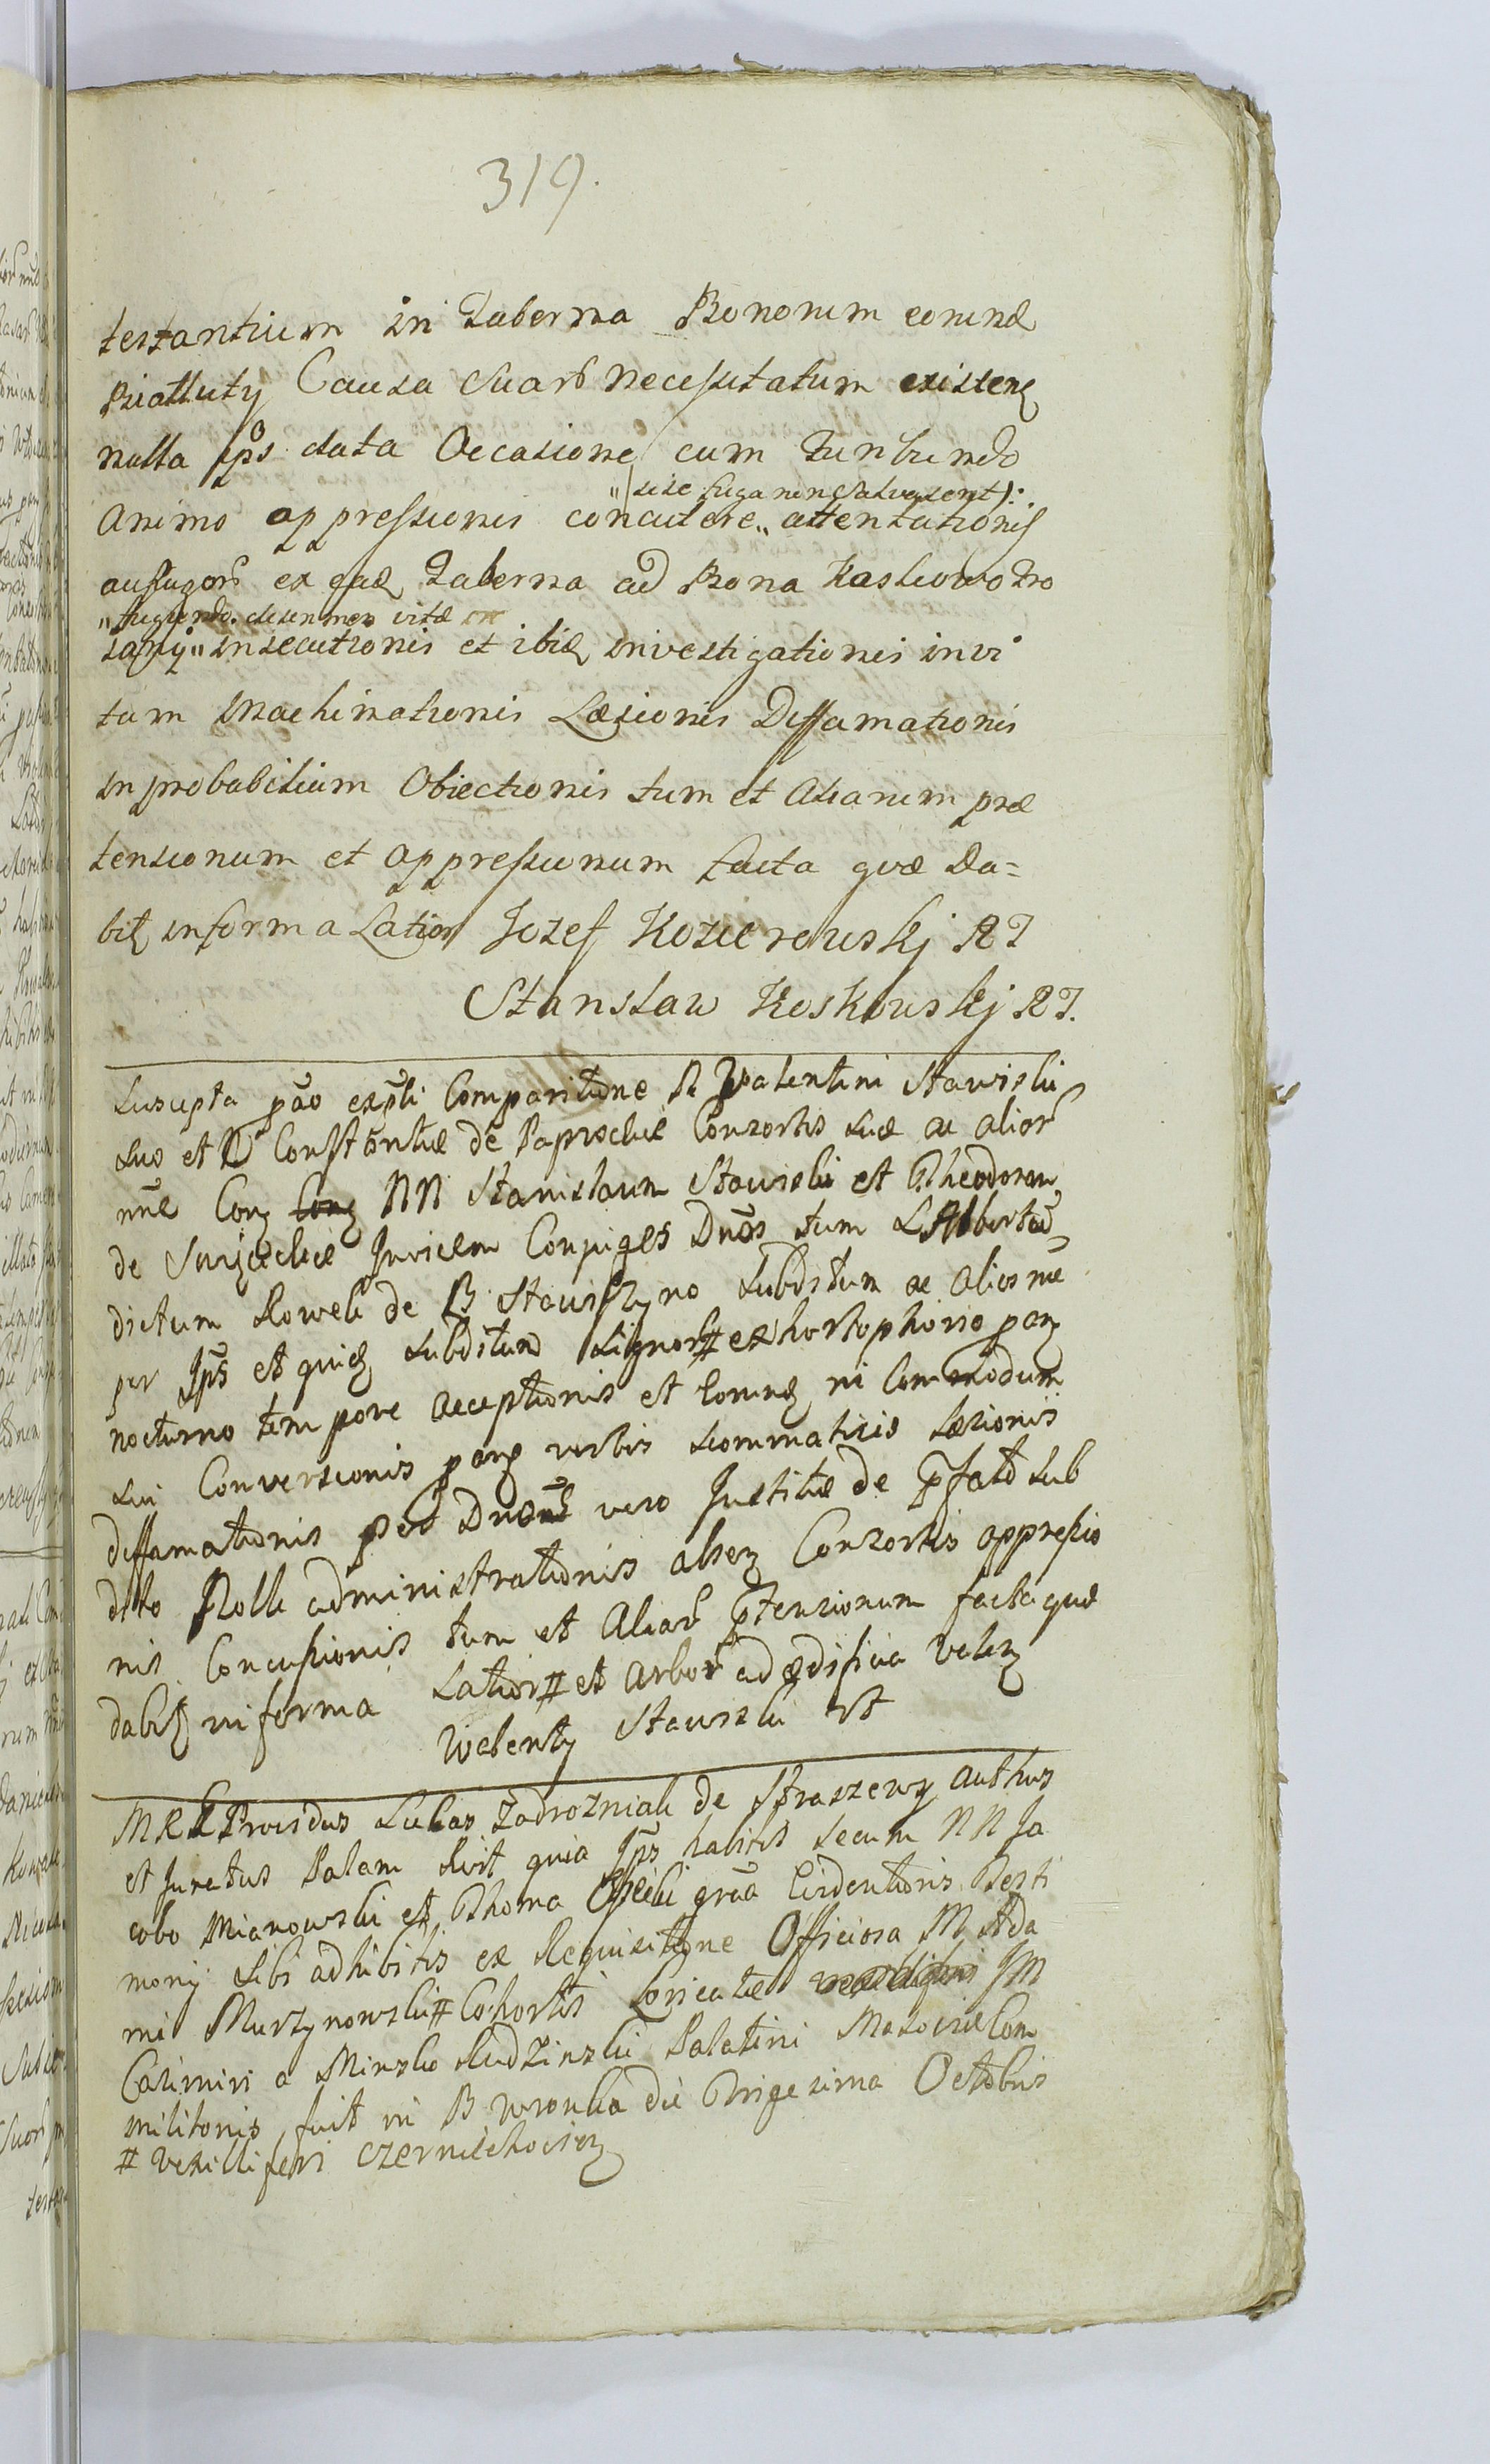 319.
testantium in Taberna Bonorum eorund
Piattuty Causa Suarb Necessitatum existen
nulla Ips data Occasione cum Furibundo
"(sese fuga non salvassent):
Animo oppressionis concutere" attentationis
aufugorb ex ead Taberna ad Bona Kaskowo Tro
"fugiendo. discrimen vitæ
janÿ" insecutionis et ibid investigationis in vi
tam Machinationis Læsionis Diffamationis
inprobabilium Obiectionis tum et Aliarum præ
tensionum et oppressionum facta qvæ Da=
bit in forma Latiori Jozef Kozierowskj RT
Stanisław Koskowskj RT.
Suscepta pão Comparitione N Valentini Stawiski
suo et N Constantiæ de Paprockie Consortis suæ ac alior
nne Con NN Stanislaum Stawiski et Theodoram
de Invicem Conjuges Dnos tum L Albertum
dictum Roweli de B Stawiszyno Subditum ac Alios nne
per Ips et quid Subditum Lignor # ex hortophorio
nocturno tempore acceptionis et Eorund in Commodum
sui Conversionis verbis scommaticis Læsionis
diffamationis per Dnos vero Justitiæ de Pfato Sub
dito Nolle administrationis Consortis oppressio
nis Concussionis tum et Aliarb Ptensionum facta quæ
dabit in forma Latiori # et arborb ad ædificia
Walenty Stawiski RT
MRL Providus Lucas Zadrozniak de Straszewy Authus
et Juratus Palam Rvit quia Ips habitis secum NN Ja
cobo Mianowski et Thoma grãa Evidentioris Testi
monÿ Sibi adhibitis ex Requisitione Officiosa M Ada
mi Murzynowski # Cohortis Loricatæ JM
Casimiri a Minsko Rudzinski Palatini Masoviæ Com
militonis fuit in B Wronka die Trigesima Octobris
# Vexilliferi Czerniechovien